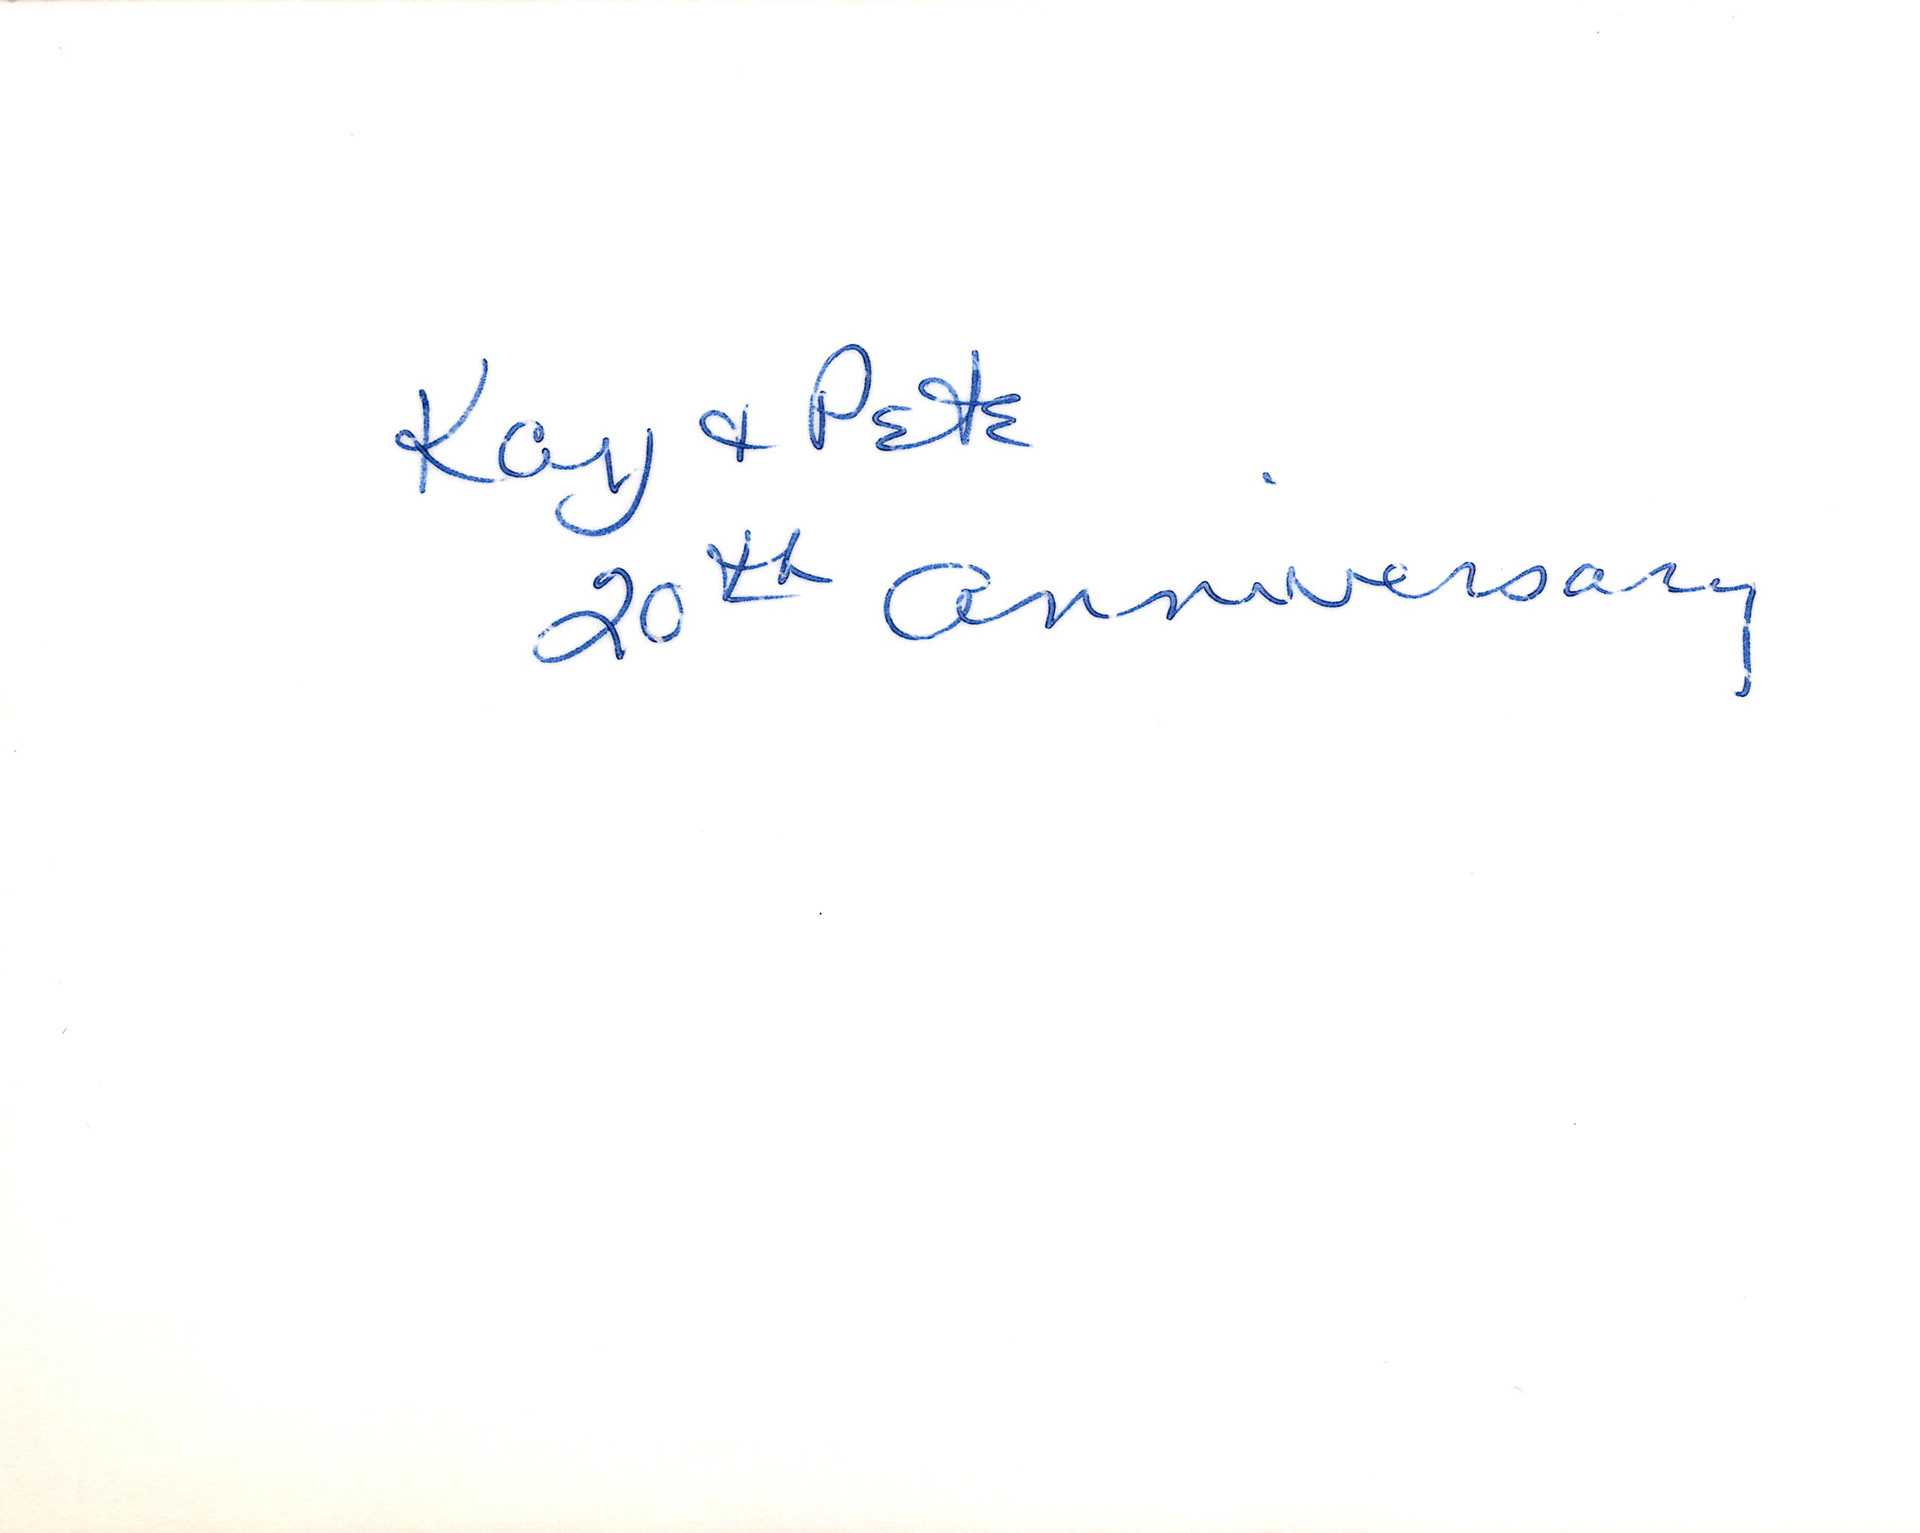 Kay & Pete
20th anniversary